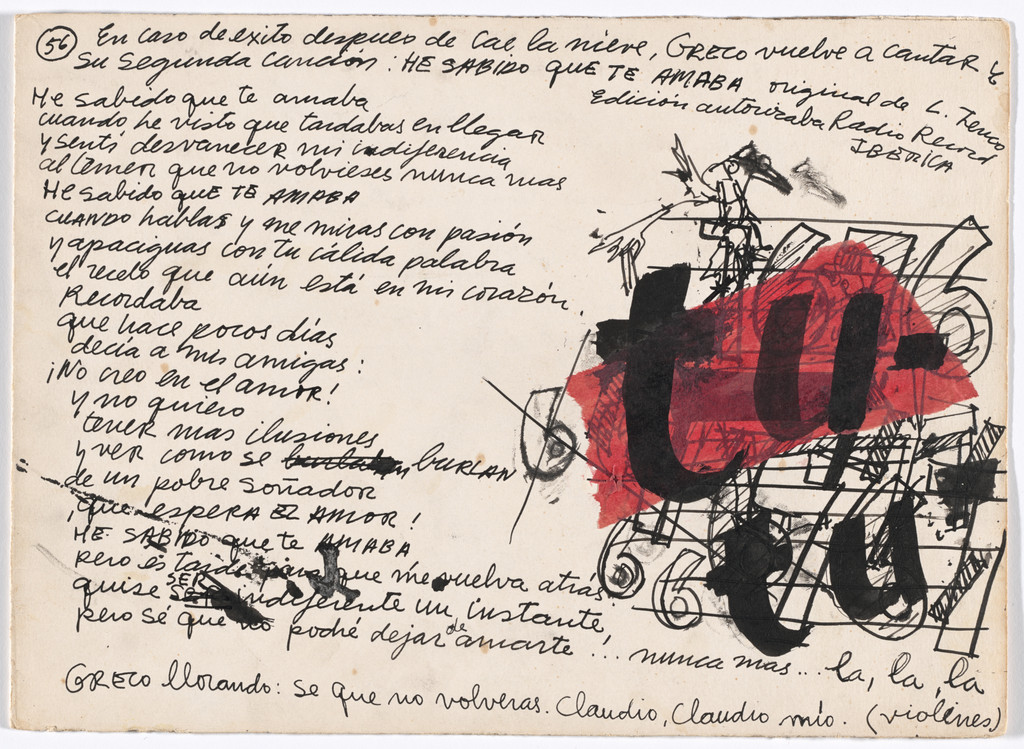 56 En caso de exito despues de Cae la nieve, GRECO vuelve a cantar
Su Segunda Canción: HE SABIDO QUE TE AMABA original de L. Tenco
Edición autorizaba Radio Record
IBERICA
He sabido que te amaba
cuando he visto que tardabas en llegar
y sentí desvanecer mi indiferencia
al temer que no volvieses nunca mas
HE SABIDO QUE TE AMABA
CUANDO hablas y me miras con pasión
y apaciguas con tu cálida palabra
el recelo que aún está en mi corazón.
Recordaba
que hace pocos días
decía a mis amigas:
¡No creo en el amor!
y no quiero
tener mas ilusiones
y ver como se BURLAN
de un pobre soñador
¡que espera el AMOR!
HE SABIDO que te AMABA
pero es tarde para que me vuelva atrás.
quise SER indiferente un instante,
pero sé que no podré dejar de amarte!... nunca mas... la, la, la
GRECO llorando: se que no volveras. Claudio, Claudio mio. (violines)
tu-
tu-